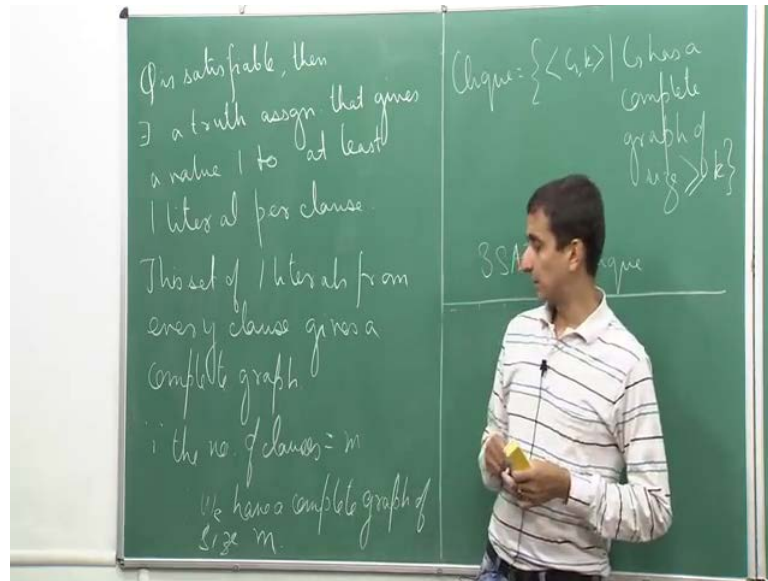 φ is satisfiable, then
∃ a truth assgn. that gives
a value 1 to at least
1 literal per clause.
This set of 1 literals from
every clause gives a
complete graph.
∵ the no. of clauses = m
We have a complete graph of
size m.
Clique = {<G,k> | G has a
complete
graph of
size ≥ k}
3SA